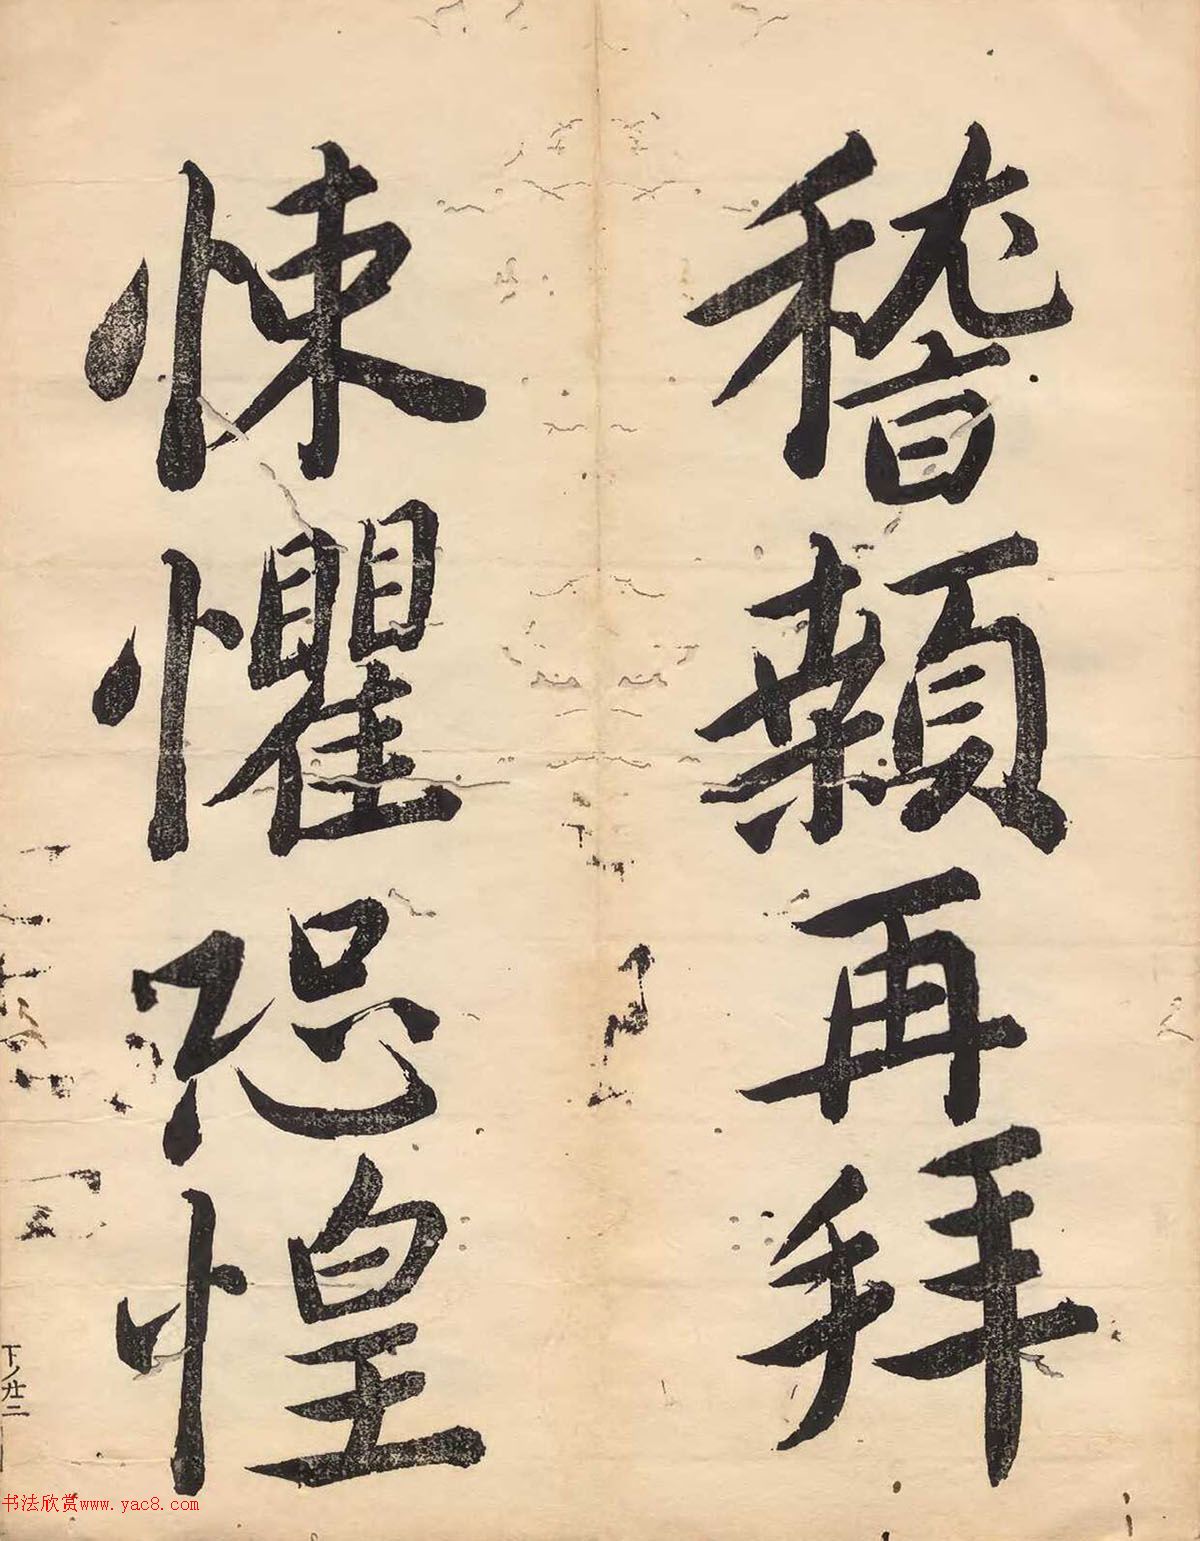 稽顙再拜
悚懼恐惶
下ノ廿二
书法欣赏www.yac8.com